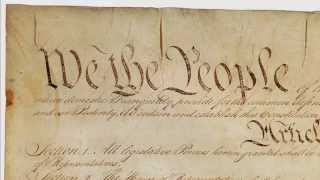 We the People of
insure domestic Tranquility, provide for the common defence
and our Posterity, do ordain and establish this Constitution
Articl
Section. 1. All legislative Powers herein granted shall be
of Representatives.
Section. 2. The House of Representatives shall be